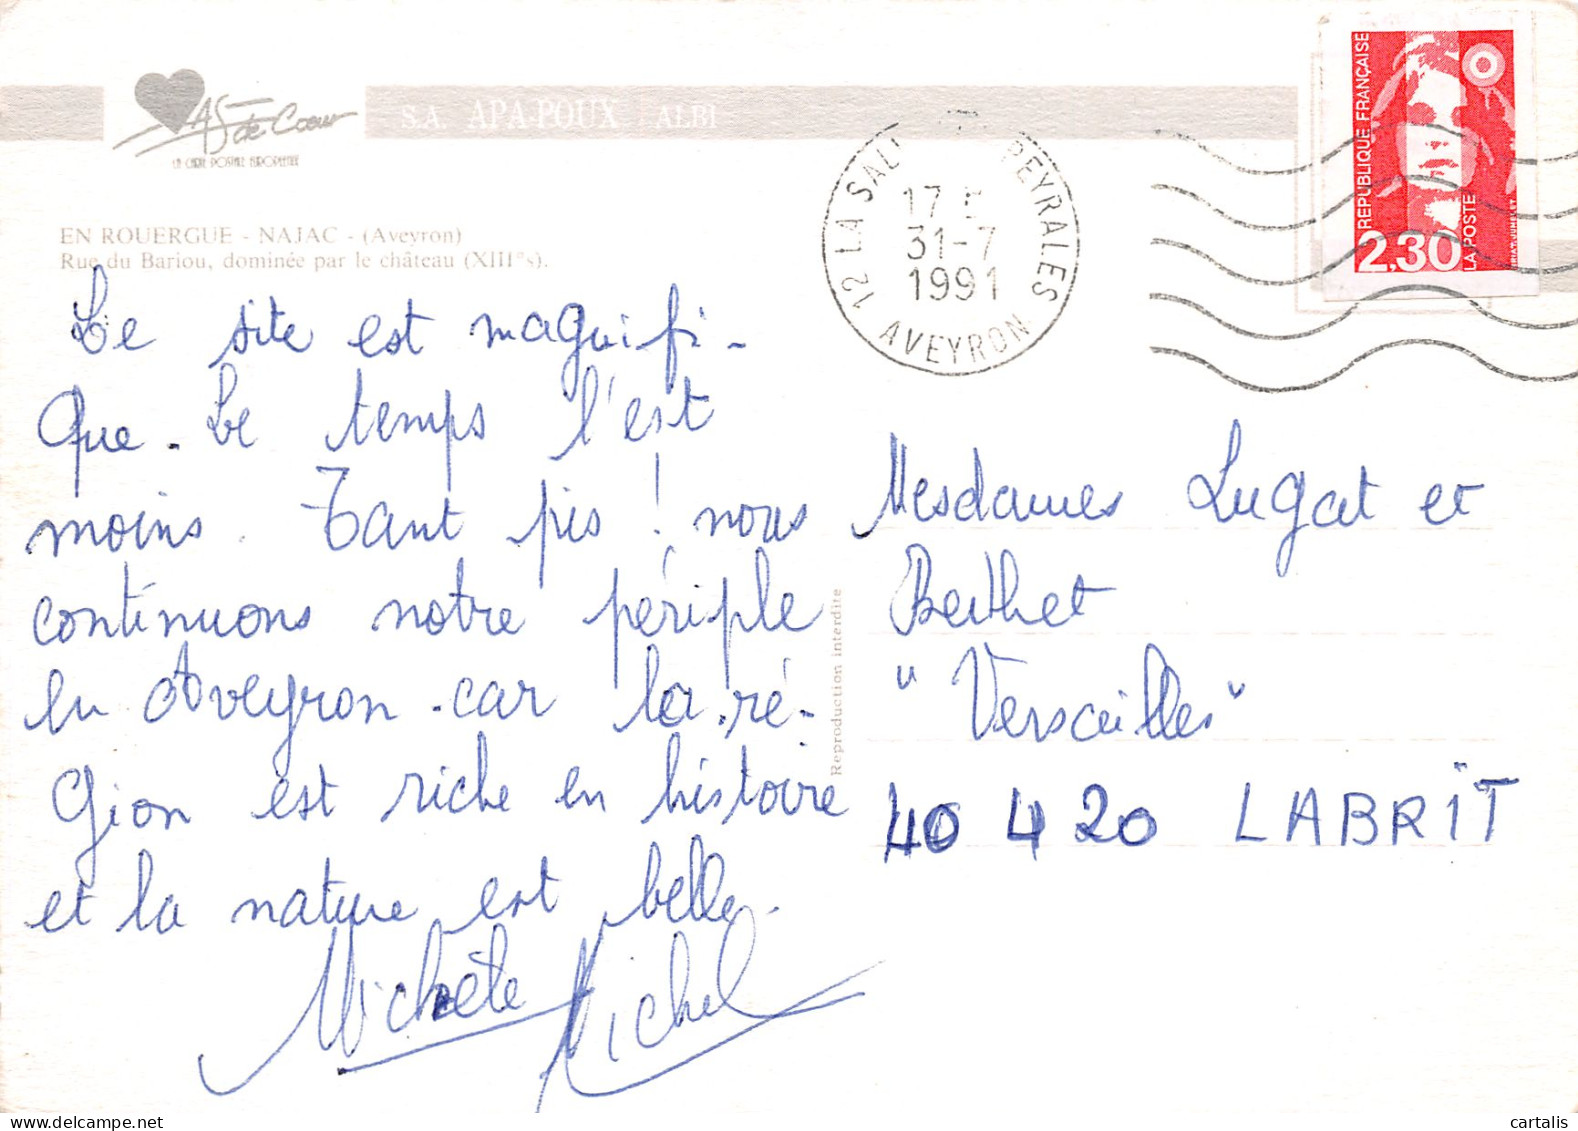 As de Cœur
LA CARTE POSTALE EUROPEENNE
S.A. APA-POUX ALBI
EN ROUERGUE - NAJAC - (Aveyron)
Rue du Bariou, dominée par le château (XIIIe s).
Le site est magnifi-
que. Le temps l'est
moins. Tant pis ! nous
continuons notre périple
en Aveyron. car la ré-
gion est riche en histoire
et la nature est belle.
Michèle Michel
Reproduction interdite
12 LA SAL PEYRALES
17
31-7
1991
AVEYRON
REPUBLIQUE FRANÇAISE
2,30
LA POSTE
Mesdames Lugat et
Berthet
"Versailles"
40 420 LABRIT
cartalis